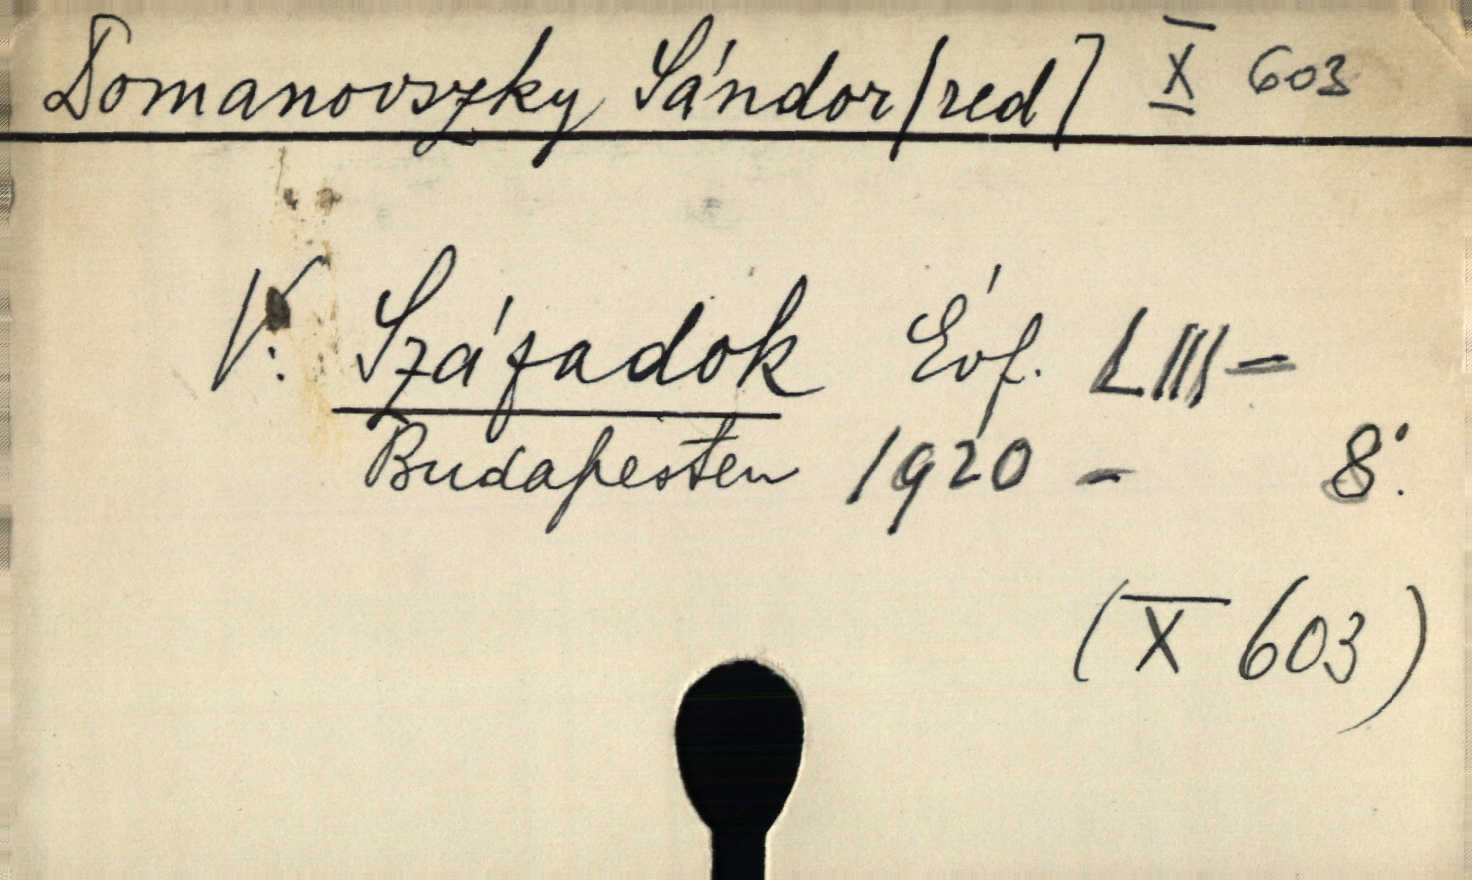 Domanovszky Sándor [red] X 603
V. Századok Évf. LIII-
Budapesten 1920 - 8°.
(X 603)